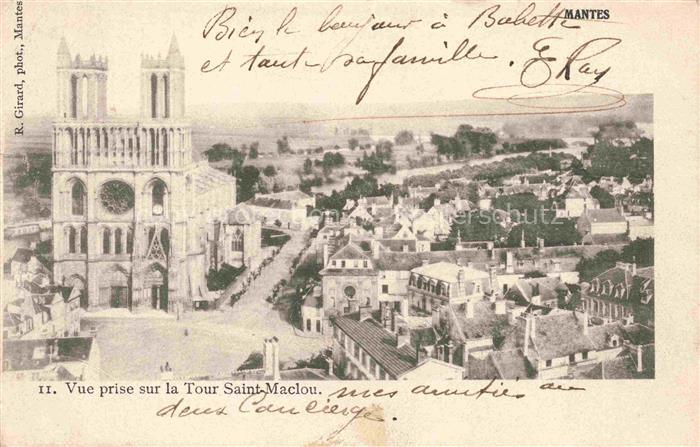 MANTES
R. Girard, phot., Mantes
Bien le bonjour à Babette
et toute sa famille. E Ray
11. Vue prise sur la Tour Saint-Maclou. mes amitiés au
deux Concierge